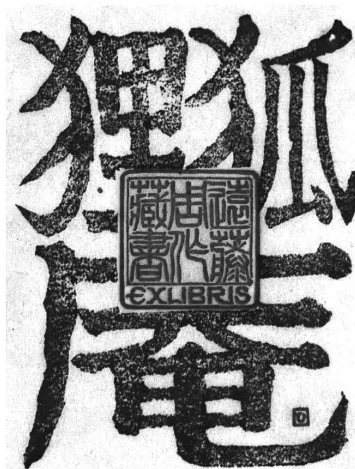 狐狸
庵
遠藤
周作
藏書
EXLIBRIS